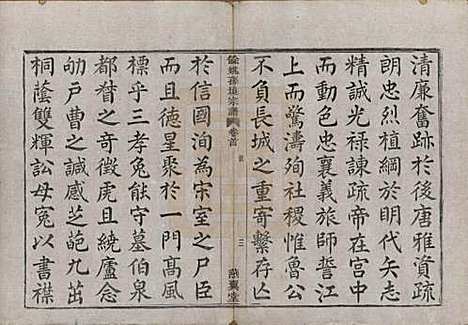 清廉奮跡於後唐雅資疏
朗忠烈植綱於明代矢志
精誠光祿諫疏帝在宮中
而動色忠襄義旅師誓江
上而驚濤殉社稷惟魯公
不負長城之重寄繫存亡
餘姚孫境宗譜 卷首 三 燕翼堂
於信國洵為宋室之尸臣
而且德星聚於一門高風
標乎三孝兔能守墓伯泉
都督之奇徵虎且繞廬念
劬戶曹之諴感芝葩九茁
桐蔭雙輝訟母冤以書襟